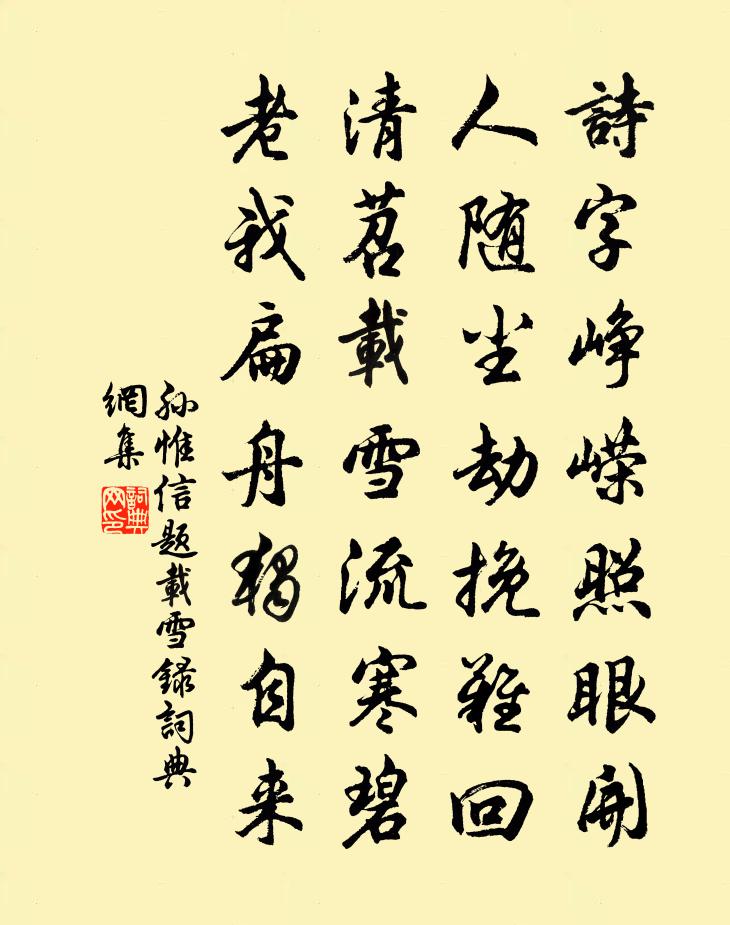 詩字崢嶸照眼開
人随尘劫挽難回
清苕載雪流寒碧
老我扁舟獨自来
孙惟信题載雪録詞典
網集
詞典网印